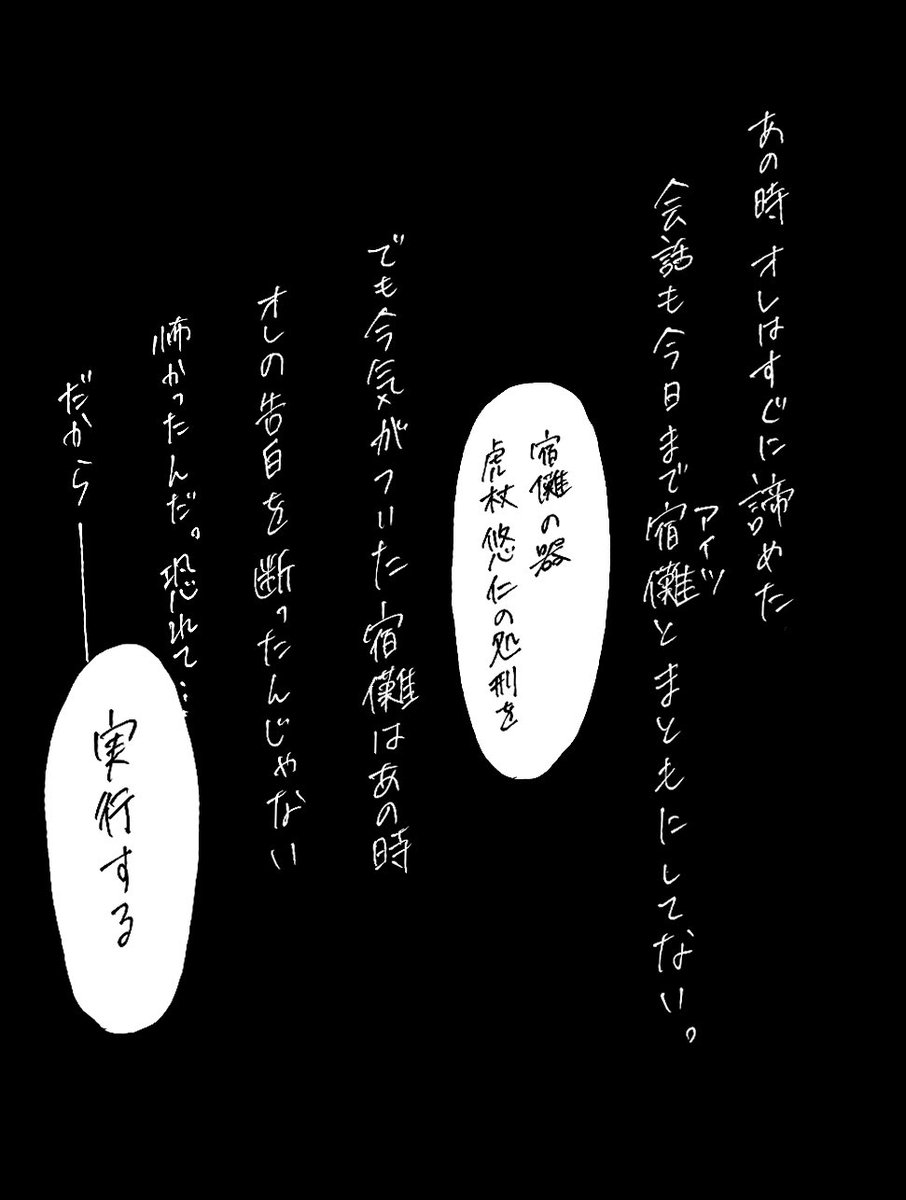 あの時オレはすぐに諦めた
会話も今日まで宿儺とまともにしてない。
アイツ
宿儺の器
虎杖悠仁の処刑を
でも今気がついた宿儺はあの時
オレの告白を断ったんじゃない
怖かったんだ。恐れて…
だから──
実行する